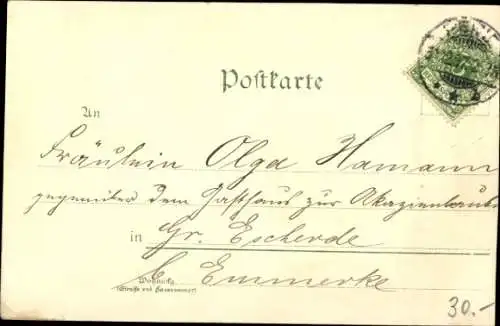 Postkarte
An
Fräulein Olga Hamann
gegenüber dem Gasthaus zur Akazienlaube
in Gr. Escherde
b. Emmerke
Wohnung
(Straße und Hausnummer)
30.-